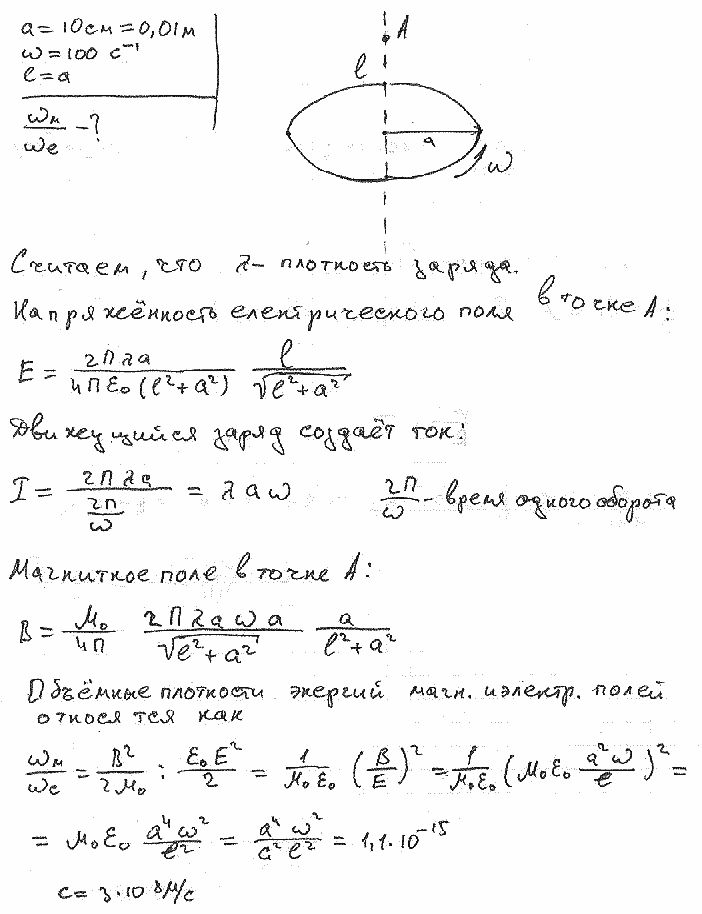 a = 10см = 0,01м
ω = 100 с⁻¹
ℓ = a
ωм/ωe - ?
A
ℓ
a
ω
Считаем, что λ - плотность заряда.
Напряжённость електрического поля в точке A:
E = 2πλa/(4πε₀(ℓ²+a²)) ℓ/√(ℓ²+a²)
Движущийся заряд создаёт ток:
I = 2πλa/(2π/ω) = λaω 2π/ω - время одного оборота
Магниткое поле в точке A:
B = μ₀/4π 2πλaωa/√(ℓ²+a²) a/(ℓ²+a²)
Объёмные плотности энергий магн. и электр. полей
относятся как
ωм/ωe = B²/2μ₀ : ε₀E²/2 = 1/μ₀ε₀ (B/E)² = 1/μ₀ε₀ (μ₀ε₀ a²ω/ℓ)² =
= μ₀ε₀ a⁴ω²/ℓ² = a⁴ω²/c²ℓ² = 1,1·10⁻¹⁵
c = 3·10⁸м/с